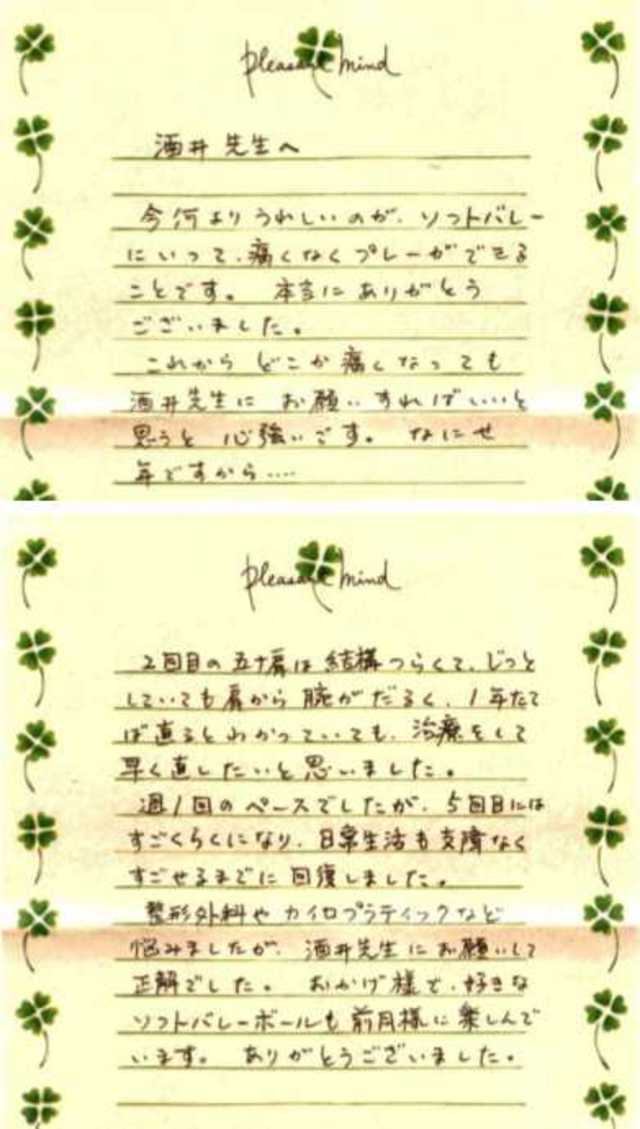 pleasant mind
酒井先生へ
今何よりうれしいのが、ソフトバレー
にいって、痛くなくプレーができる
ことです。 本当にありがとう
ございました。
これから どこか痛くなっても
酒井先生に お願いすればいいと
思うと 心強いです。 なにせ
年ですから....
pleasant mind
2回目の五十肩は結構つらくて、じっと
していても肩から腕がだるく、1年たて
ば直るとわかっていても、治療をして
早く直したいと思いました。
週1回のペースでしたが、5回目には
すごくらくになり、日常生活も支障なく
すごせるまでに回復しました。
整形外科やカイロプラティックなど
悩みましたが、酒井先生にお願いして
正解でした。 おかげ様で、好きな
ソフトバレーボールも前同様に楽しんで
います。 ありがとうございました。